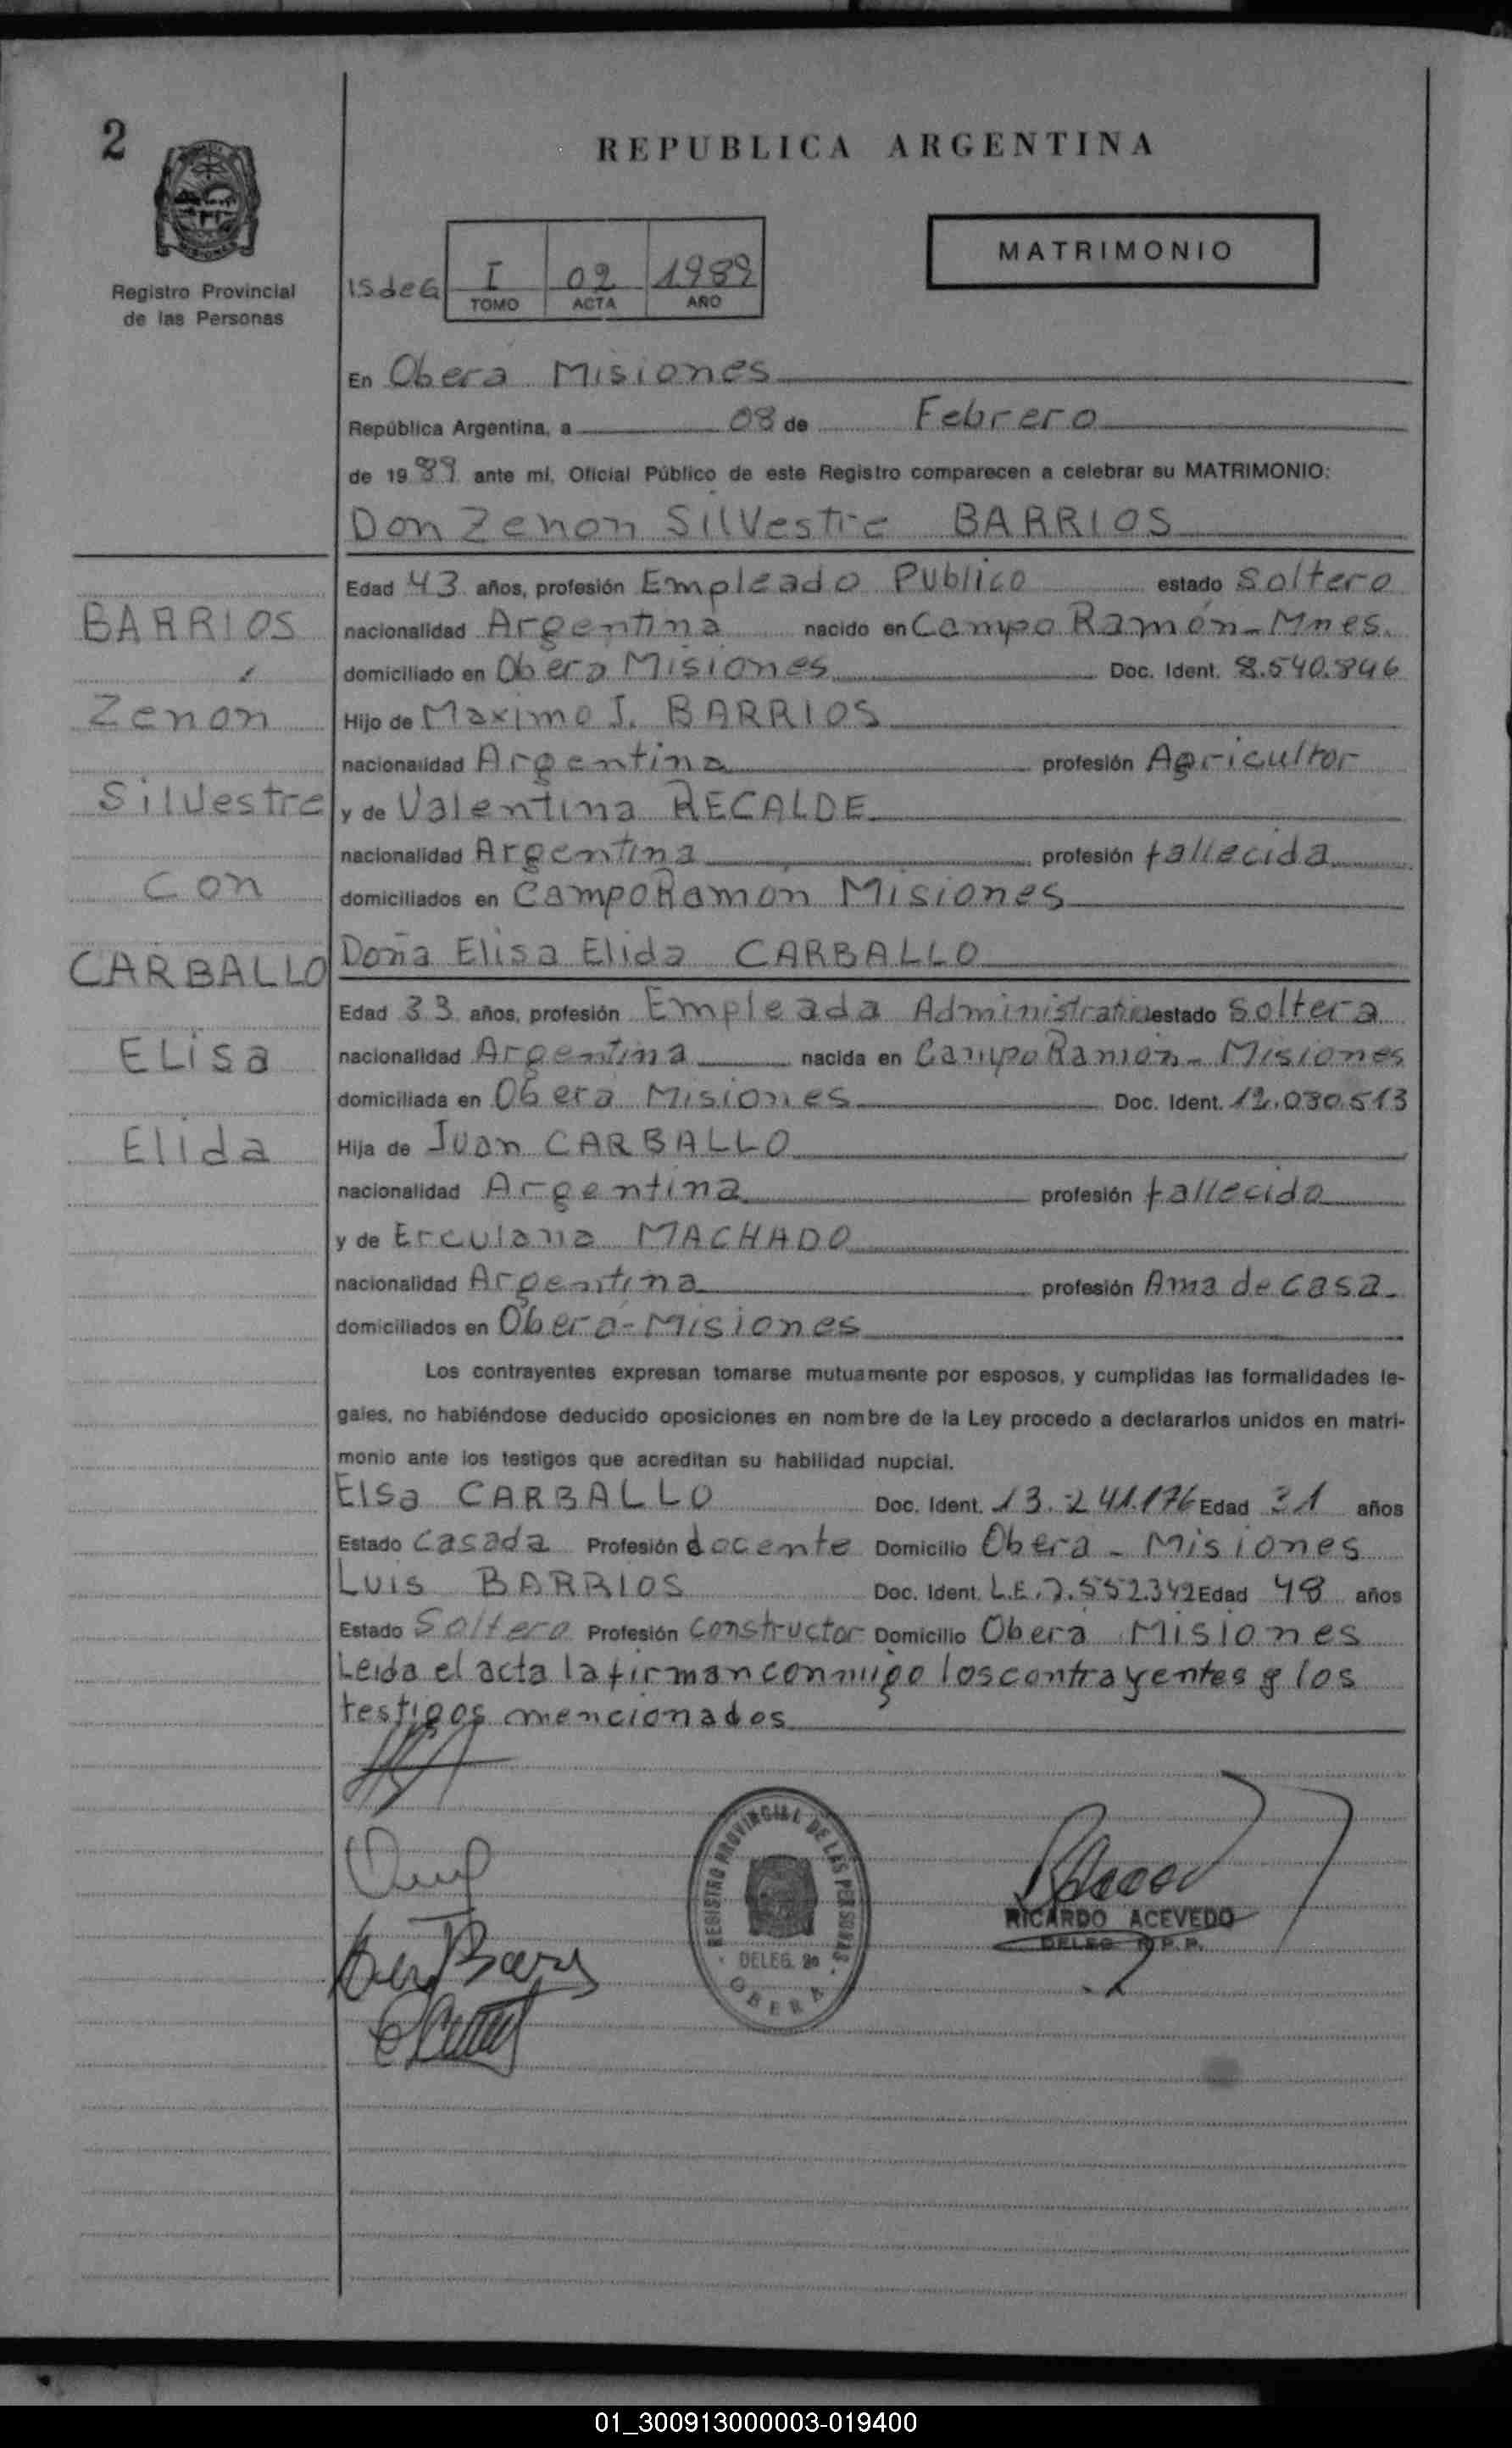 2
REPUBLICA ARGENTINA
MATRIMONIO
Registro Provincial
de las Personas
ISdeG I 02 1989
TOMO ACTA AÑO
En Obera Misiones
República Argentina, a 08 de Febrero
de 1989 ante mi, Oficial Público de este Registro comparecen a celebrar su MATRIMONIO:
Don Zenon Silvestre BARRIOS
Edad 43 años, profesión Empleado Publico estado Soltero
nacionalidad Argentina nacido en Campo Ramón - Mnes.
domiciliado en Obera Misiones Doc. Ident. 8.540.846
Hijo de Maximo J. BARRIOS
nacionalidad Argentina profesión Agricultor
y de Valentina RECALDE
nacionalidad Argentina profesión fallecida
domiciliados en Campo Ramón Misiones
Doña Elisa Elida CARBALLO
Edad 33 años, profesión Empleada Administrativa estado soltera
nacionalidad Argentina nacida en Campo Ramón - Misiones
domiciliada en Obera Misiones Doc. Ident. 12.080.513
Hija de Juan CARBALLO
nacionalidad Argentina profesión fallecido
y de Erculana MACHADO
nacionalidad Argentina profesión Ama de casa
domiciliados en Obera - Misiones
Los contrayentes expresan tomarse mutuamente por esposos, y cumplidas las formalidades le-
gales, no habiéndose deducido oposiciones en nombre de la Ley procedo a declararlos unidos en matri-
monio ante los testigos que acreditan su habilidad nupcial.
Elsa CARBALLO Doc. Ident. 13.241.176 Edad 31 años
Estado Casada Profesión docente Domicilio Obera - Misiones
Luis BARRIOS Doc. Ident. L.E. 7.552.342 Edad 48 años
Estado Soltero Profesión Constructor Domicilio Obera Misiones
Leida el acta la firman conmigo los contrayentes y los
testigos mencionados
BARRIOS
Zenón
Silvestre
con
CARBALLO
Elisa
Elida
REGISTRO PROVINCIAL DE LAS PERSONAS
DELEG.
OBERA
RICARDO ACEVEDO
DELEG R.P.P.
01_300913000003-019400